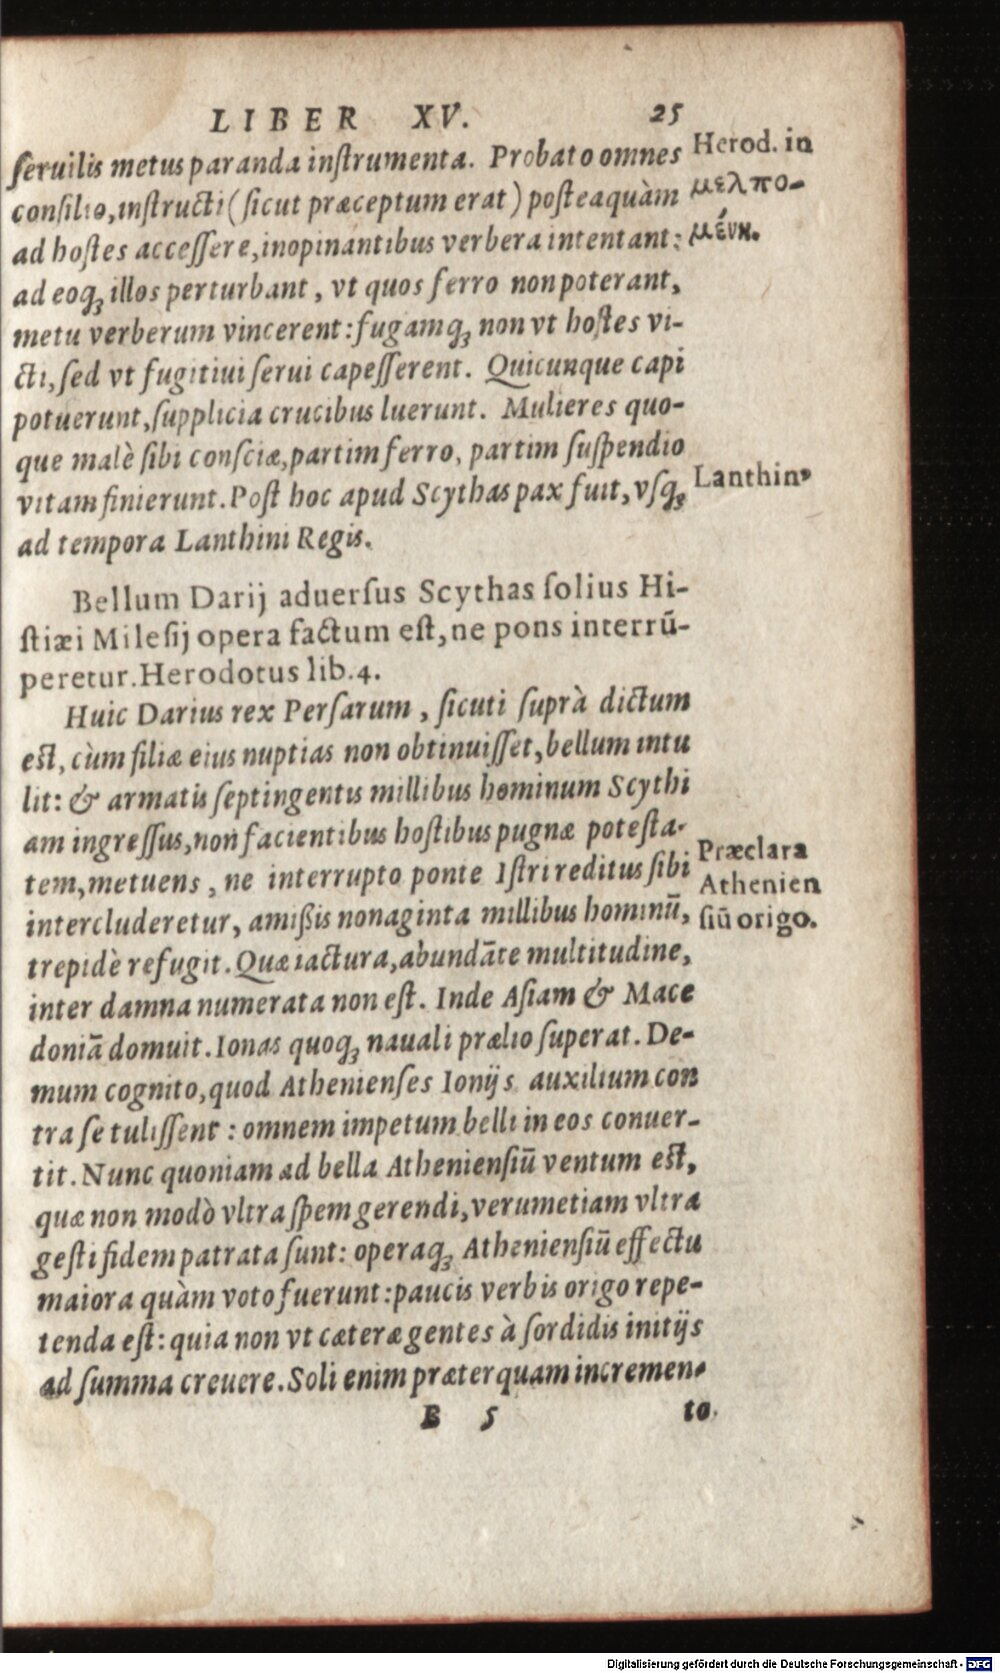 LIBER XV. 25
ſeruilis metus paranda inſtrumenta. Probato omnes
conſilio, inſtructi (ſicut præceptum erat) poſteaquàm
ad hoſtes acceſſere, inopinantibus verbera intentant:
ad eoq́ꝫ illos perturbant, vt quos ferro non poterant,
metu verberum vincerent: fugamq́ꝫ non vt hoſtes vi-
cti, ſed vt fugitiui ſerui capeſſerent. Quicunque capi
potuerunt, ſupplicia crucibus luerunt. Mulieres quo-
que malè ſibi conſciæ, partim ferro, partim ſuſpendio
vitam finierunt. Poſt hoc apud Scythas pax fuit, vſq́ꝫ
ad tempora Lanthini Regis.
Herod. in
μελπο-
μένῃ.
Lanthinꝰ
Bellum Darij aduerſus Scythas ſolius Hi-
ſtiæi Mileſij opera factum eſt, ne pons interrũ-
peretur. Herodotus lib. 4.
Huic Darius rex Perſarum, ſicuti ſuprà dictum
eſt, cùm filiæ eius nuptias non obtinuiſſet, bellum intu
lit: & armatis ſeptingentis millibus hominum Scythi
am ingreſſus, non facientibus hoſtibus pugnæ poteſta-
tem, metuens, ne interrupto ponte Iſtri reditus ſibi
intercluderetur, amißis nonaginta millibus hominũ,
trepidè refugit. Quæ iactura, abundãte multitudine,
inter damna numerata non eſt. Inde Aſiam & Mace
doniã domuit. Ionas quoq́ꝫ nauali prælio ſuperat. De-
mum cognito, quod Athenienſes Ionijs auxilium con
tra ſe tuliſſent: omnem impetum belli in eos conuer-
tit. Nunc quoniam ad bella Athenienſiũ ventum eſt,
quæ non modò vltra ſpem gerendi, verumetiam vltra
geſti fidem patrata ſunt: operaq́ꝫ Athenienſiũ effectu
maiora quàm voto fuerunt: paucis verbis origo repe-
tenda eſt: quia non vt cæteræ gentes à ſordidis initijs
ad ſumma creuere. Soli enim præterquam incremen-
Præclara
Athenien
ſiũ origo.
B 5 to
Digitalisierung gefördert durch die Deutsche Forschungsgemeinschaft - DFG